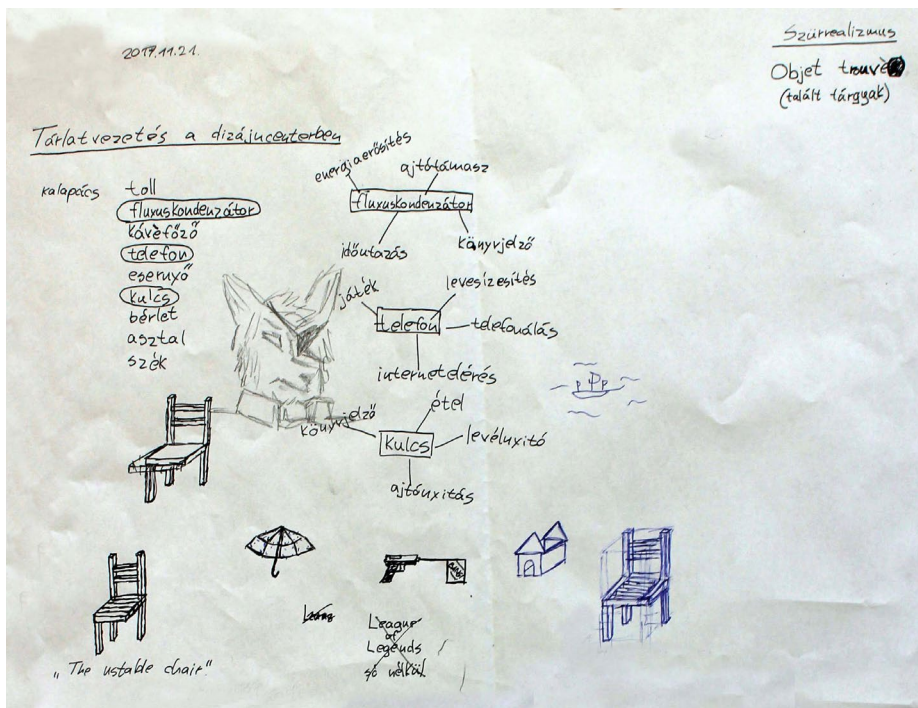 2017.11.21.
Szürrealizmus
Objet trouvé
(talált tárgyak)
Tárlatvezetés a dizájncenterben
kalapács
toll
fluxuskondenzátor
kávéfőző
telefon
esernyő
kulcs
bérlet
asztal
szék
energiaerősítés
ajtótámasz
fluxuskondenzátor
időutazás
könyvjelző
játék
levesízesítés
telefon
telefonálás
internetelérés
étel
könyvjelző
kulcs
levélnyitó
ajtónyitás
League
of
Legends
só nélkül
„The ustable chair"